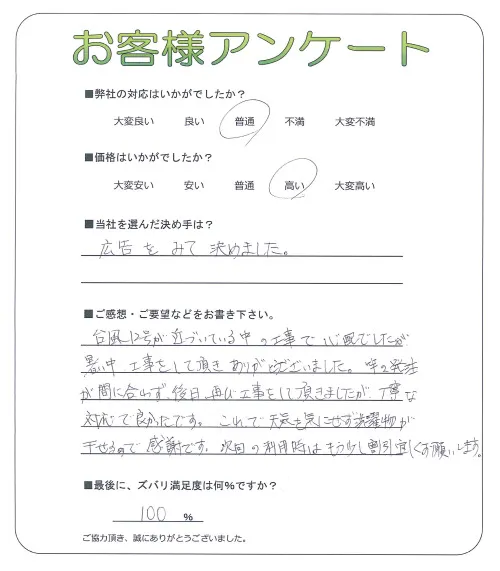 お客様アンケート
■弊社の対応はいかがでしたか？
大変良い 良い 普通 不満 大変不満
■価格はいかがでしたか？
大変安い 安い 普通 高い 大変高い
■当社を選んだ決め手は？
広告をみて決めました。
■ご感想・ご要望などをお書き下さい。
台風12号が近づいている中の工事で心配でしたが
暑い中工事をして頂きありがとうございました。竿の発注
が間に合わず、後日、再び工事をして頂きましたが、丁寧な
対応で良かったです。これで天気を気にせず洗濯物が
干せるので感謝です。次回の利用時はもう少し割引宜しくお願いします。
■最後に、ズバリ満足度は何％ですか？
100 ％
ご協力頂き、誠にありがとうございました。